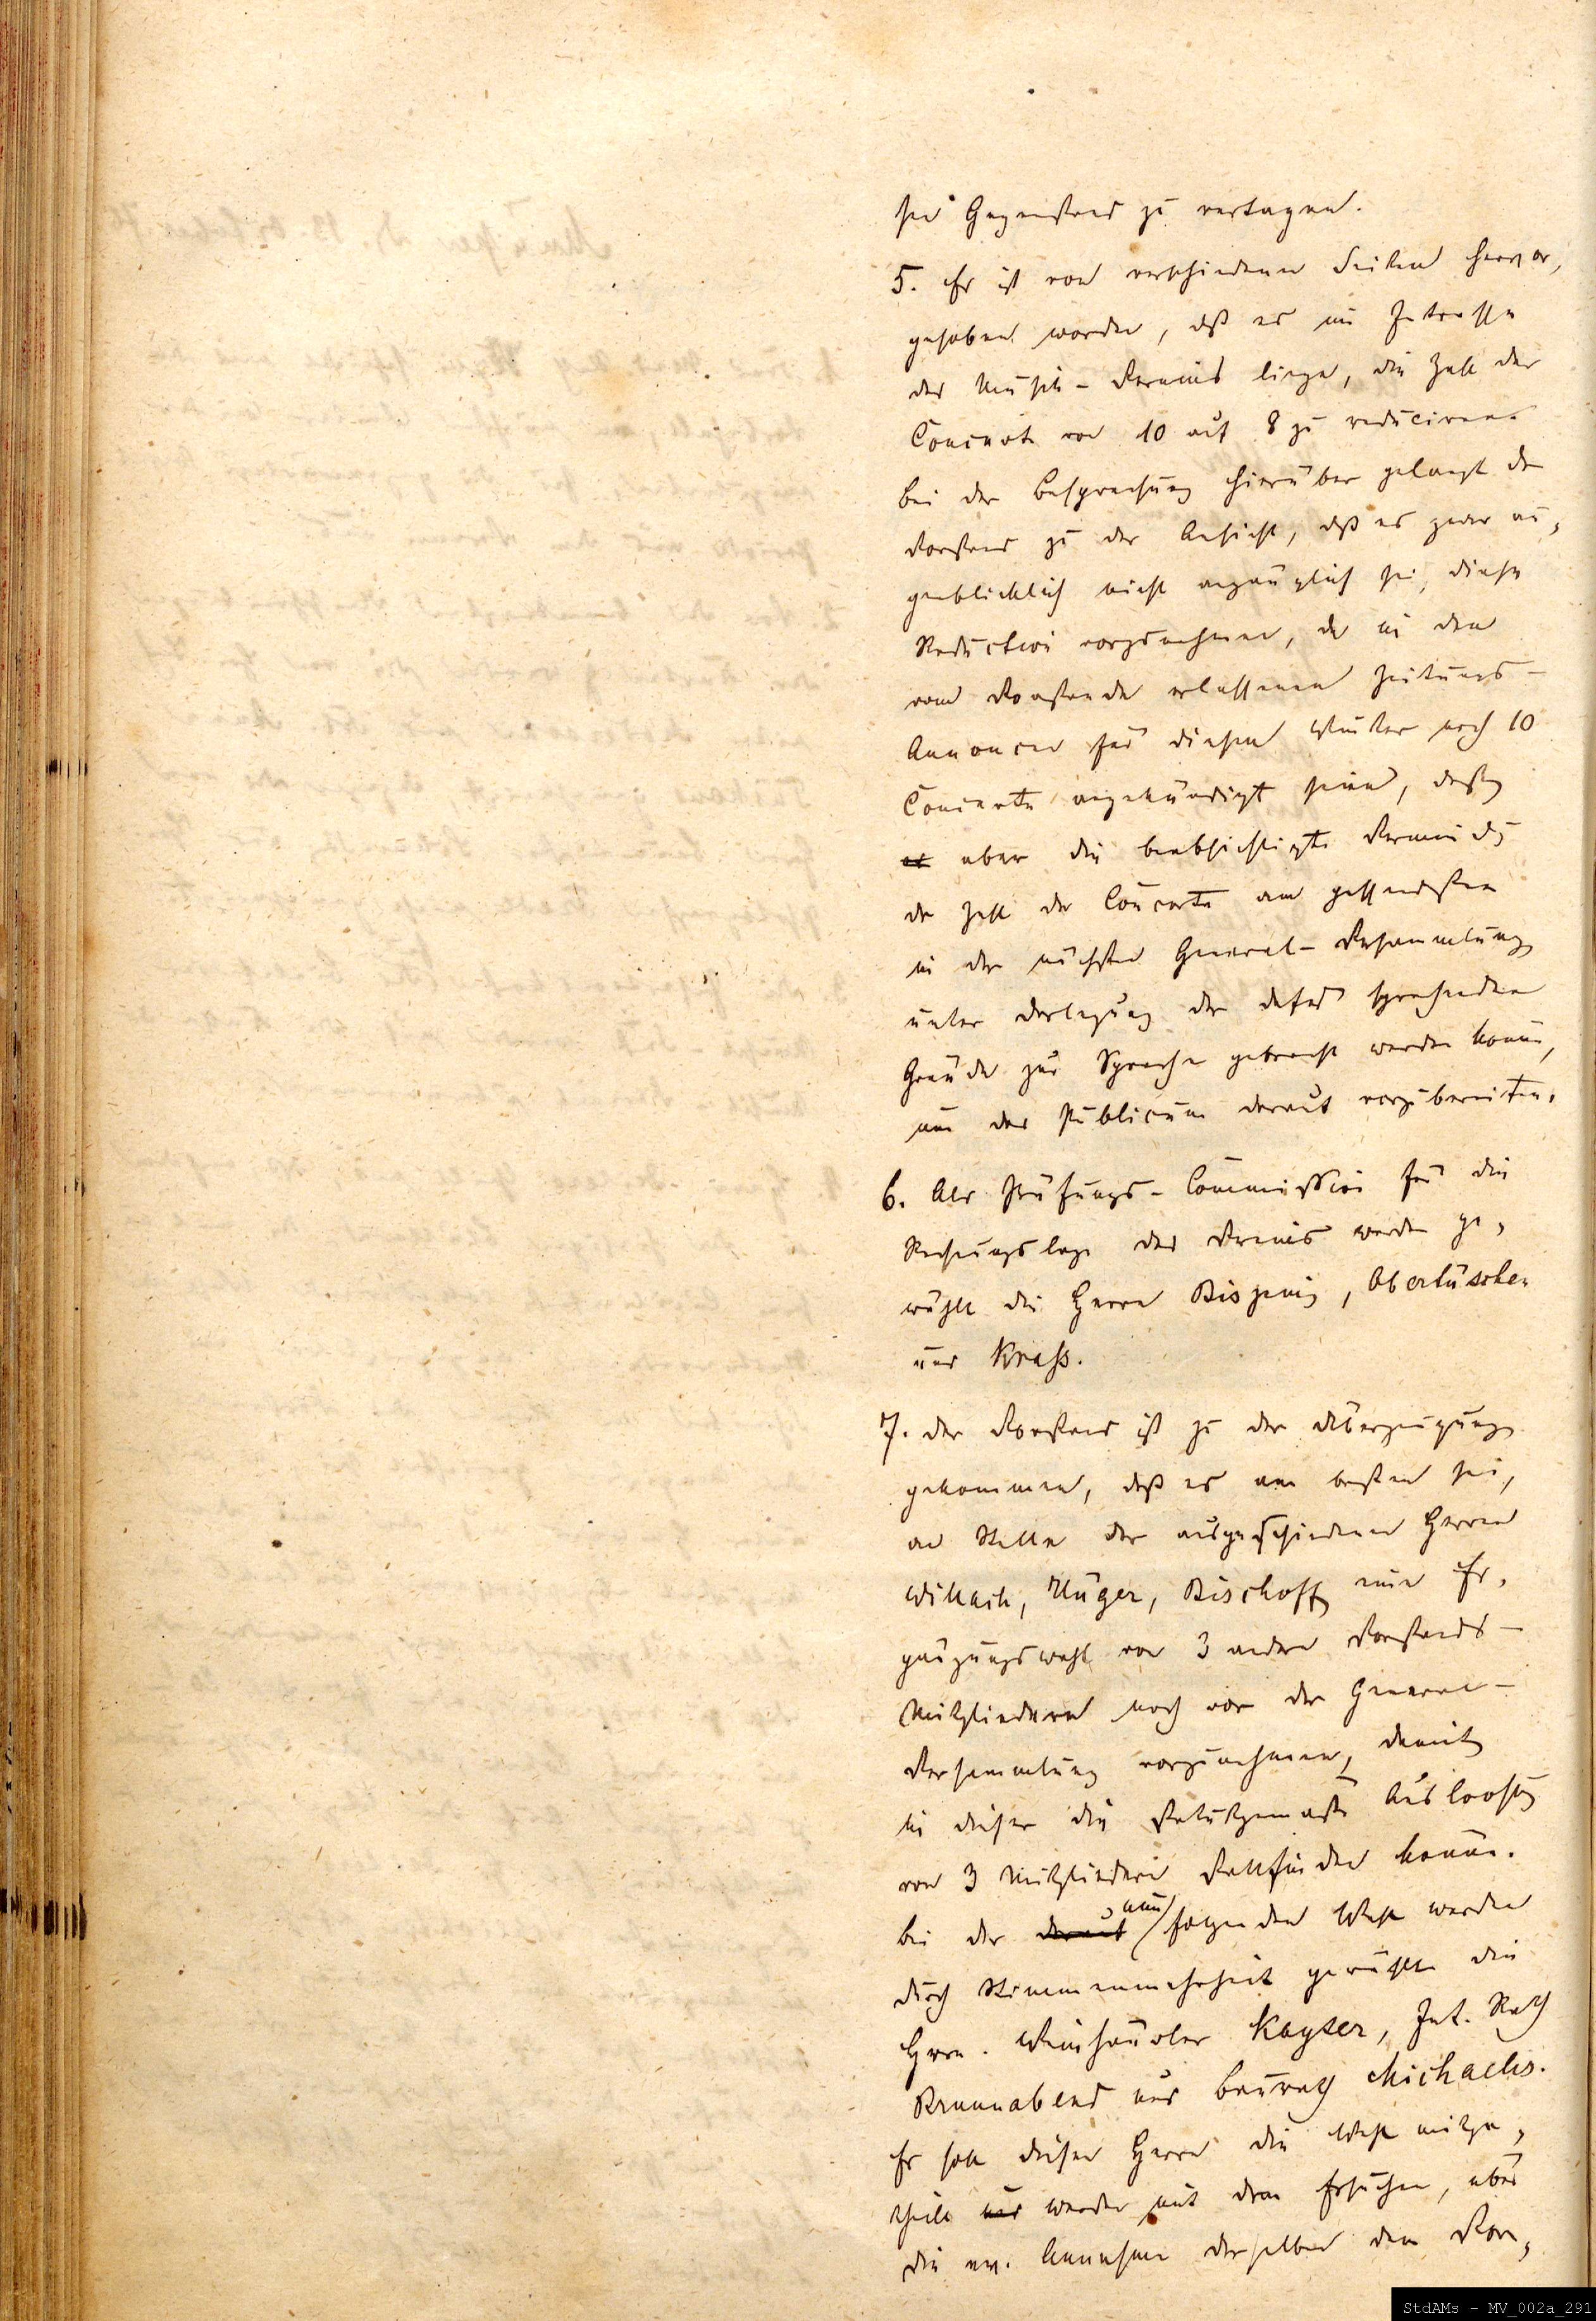 sen Gegenstand zu vertagen.
5. Es ist von verschiedenen Seiten hervor,
gehoben worden, daß es im Interesse
des Musik-Vereins liege, die Zahl der
Concerte von 10 auf 8 zu reduciren.
Bei der Besprechung hierüber gelangt der
Vorstand zu der Ansicht, daß es zwar au,
genblicklich nicht angänglich sei, diese
Reduction vorzunehmen, da in den
vom Vorstande erlassenen Zeitungs-
Annoncen für diesen Winter noch 10
Concerte angekündigt seien, daß
aber die beabsichtigte Verminderung
der Zahl der Concerte am passendsten
in der nächsten General-Versammlung
unter Darlegung der dafür sprechenden
Gründe zur Sprache gebracht werden könne,
um das Publicum darauf vorzubereiten.
6. Als Prüfungs-Commission für die
Rechnungslage des Vereins werden ge,
wählt die Herren Bisping, Obertüschen
und Krass.
7. Der Vorstand ist zu der Überzeugung
gekommen, daß es am besten sei,
an Stelle der ausgeschiedenen Herren
Willach, Hüger, Bischoff eine Er,
gänzungswahl von 3 andern Vorstands-
Mitgliedern noch vor der General-
Versammlung vorzunehmen, damit
in dieser die statutgemäße Ausloosung
von 3 Mitgliedern stattfinden könne.
Bei der darauf nun folgenden Wahl werden
durch Stimmenmehrheit gewählt die
Herrn. Weinhändler Kayser, Int. Rath
Brunnabend und Baurath Michaelis.
Es soll diesen Herrn die Wahl mitge,
theilt und werden mit dem Ersuchen, über
die ev. Annahme derselben dem Vor,
StdAMs - MV_002a_291